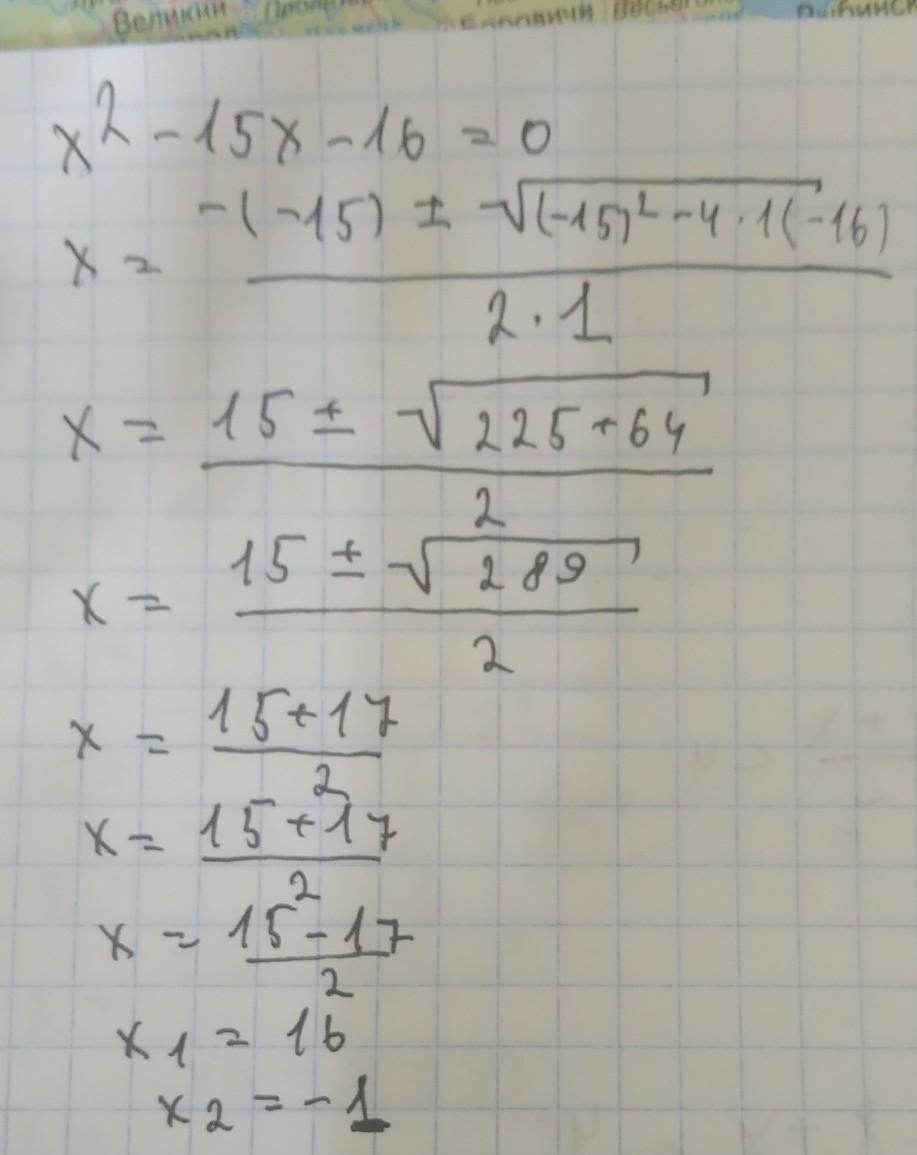 Великий Пролет
Боровичи Весьег
Рыбинск
x² - 15x - 16 = 0
x = (-(-15) ± √((-15)² - 4 · 1(-16))) / (2 · 1)
x = (15 ± √(225 + 64)) / 2
x = (15 ± √289) / 2
x = (15 + 17) / 2
x = (15 + 17) / 2
x = (15 - 17) / 2
x₁ = 16
x₂ = -1